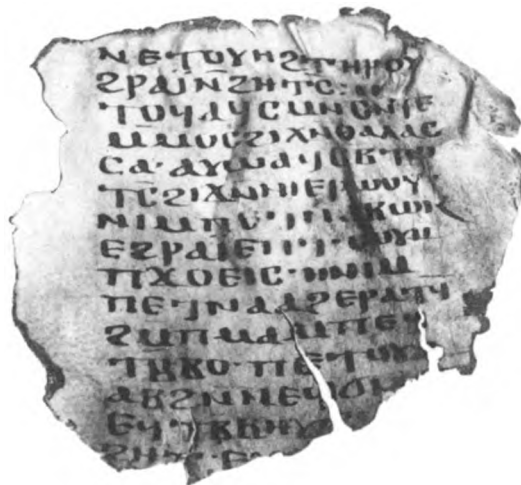 ⲛⲉⲧⲟⲩⲏϩⲧⲏⲣⲟⲩ
ϩⲣⲁⲓⲛϩⲏⲧⲥ·ⲛ
ⲧⲟϥⲁϥⲥⲙⲛⲥⲛⲧⲉ
ⲙⲙⲟⲥϩⲓϫⲛⲑⲁⲗⲁⲥ
ⲥⲁ·ⲁⲩⲱⲁϥⲥⲃⲧⲱ
ⲧⲥϩⲓϫⲛⲛⲓⲉⲣⲱⲟⲩ
ⲛⲓⲙⲡⲉⲧⲛⲁⲃⲱⲕ
ⲉϩⲣⲁⲓⲉⲡⲧⲟⲟⲩⲙ
ⲡϫⲟⲉⲓⲥ·ⲏⲛⲓⲙ
ⲡⲉⲧⲛⲁⲁϩⲉⲣⲁⲧϥ
ϩⲙⲡⲙⲁⲙⲡⲉϥ
ⲧⲃⲃⲟ·ⲡⲉⲧⲟⲩⲁ
ⲁⲃϩⲛⲛⲉϥϭⲓ
ⲉϥⲧⲃⲃⲏⲩ